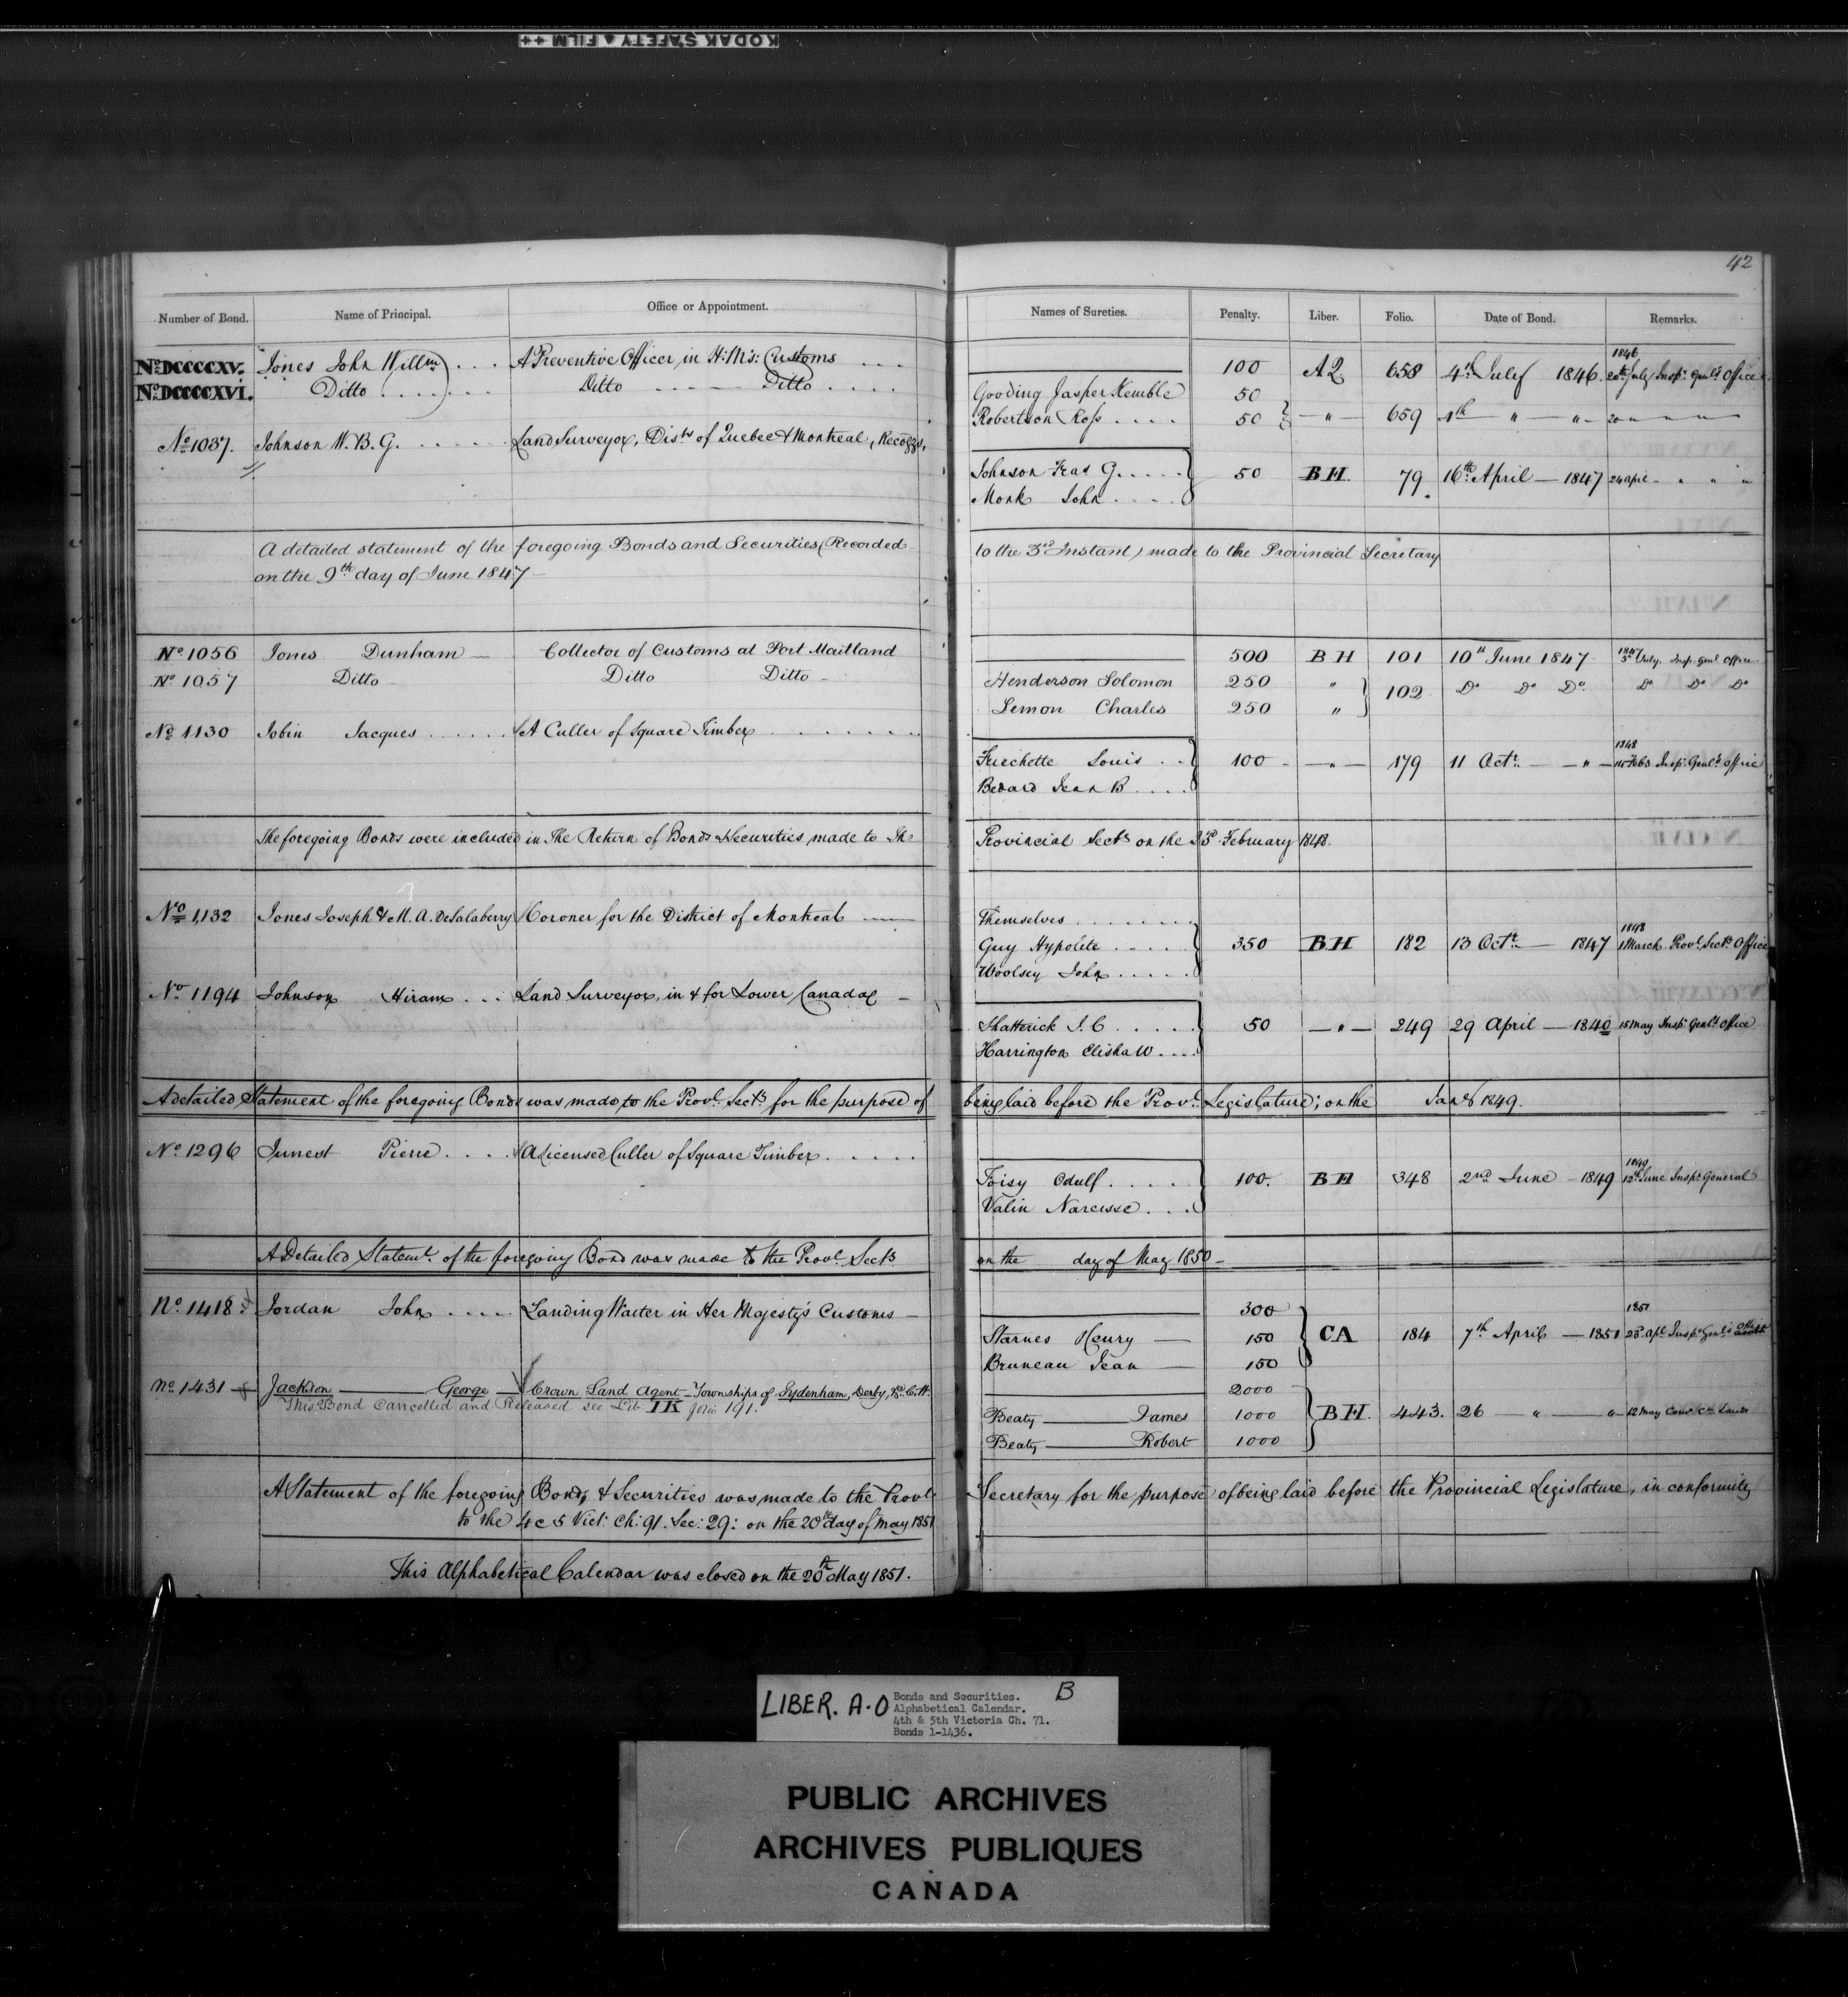 KODAK SAFETY FILM ++
42
Number of Bond. Name of Principal. Office or Appointment. Names of Sureties. Penalty. Liber. Folio. Date of Bond. Remarks.
No. DCCCCXV. Jones John Willm . . . A Preventive Officer, in H:M's: Customs . . . 100 A2 658 4th July 1846. 1846 20th July Inspr. Genl's Office
No. DCCCCXVI. Ditto . . . . . . . Ditto Ditto . . . .
Gooding Jasper Kemble 50
Robertson Ross . . . . 50 — " — 659 4th — " — " — 20 " " "
No. 1037. Johnson W. B. G. . . . . . Land Surveyor, Dists of Quebec & Montreal,
Johnson Fras G. . . . . 50 BH. 79. 16th April — 1847 24 april - " " "
Monk John . . . .
A detailed statement of the foregoing Bonds and Securities (Recorded to the 3rd Instant) made to the Provincial Secretary
on the 9th day of June 1847
No. 1056 Jones Dunham — Collector of Customs at Port Maitland 500 BH 101 10th June 1847 1847 July. Insp. Genl. Office
No. 1057 Ditto Ditto Ditto - Henderson Solomon 250 " 102 Do Do Do Do Do Do
Lemon Charles 250 "
No. 1130 Jobin Jacques . . . . . . A Culler of Square Timber . . . . . . . .
Frechette Louis . . 100 - — " — 179 11 Octr. — " — 1848 Feby Inspr. Genl's Office
Bedard Jean B . . . .
The foregoing Bonds were included in The Return of Bonds & Securities made to The Provincial Secty on the February 1848.
No. 1132 Jones Joseph & M. A. DeSalaberry Coroner for the District of Montreal — Themselves . . . . . . . .
Guy Hypolite . . . . . 350 BH 182 13 Octr. — 1847 1848 1 March Provl. Secty's Office
Woolsey John . . . . .
No. 1194 Johnson Hiram . . . Land Surveyor, in & for Lower Canada —
Shatterick I. C . . . . . 50 — " — 249 29 April — 1848 15 May Inspr. Genl's Office
Harrington Elisha W . . . .
A detailed Statement of the foregoing Bonds was made to the Provl. Secty for the purpose of being laid before the Provl. Legislature; on the Jany 1849.
No. 1296 Junest Pierre . . . . A Licensed Culler of Square Timber . . . . .
Foisy Odulf . . . . . 100. BH 348 2nd June - 1849 1849 12th June Inspr. General
Valin Narcisse . . .
A Detailed Statemt. of the foregoing Bond was made to the Provl. Secty on the day of May 1850 —
No. 1418 Jordan John . . . . Landing Waiter in Her Majesty's Customs — 300
Starnes Henry — 150 CA 184 7th April — 1851 1851 23d. apl. Inspr. Genl's Office
Bruneau Jean — 150
No. 1431 Jackson — George — Crown Land Agent - Townships of Sydenham, Derby, &c. C.W. 2000
This Bond Cancelled and Released see Lib. IK folio 191.
Beaty — James 1000 BH. 443. 26 — " — " 12 May Comr. Cn. Lands
Beaty — Robert 1000
A Statement of the foregoing Bonds & Securities was made to the Provl. Secretary for the purpose of being laid before the Provincial Legislature, in conformity
to the 4 & 5 Vict: Ch: 91. Sec: 29: on the 20th day of May 1851
This Alphabetical Calendar was closed on the 20th May 1851.
LIBER. A-O Bonds and Securities. B
Alphabetical Calendar.
4th & 5th Victoria Ch. 71.
Bonds 1-1436.
PUBLIC ARCHIVES
ARCHIVES PUBLIQUES
CANADA